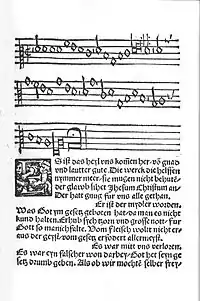 ES ist das heyl vns komen her/vō gnad
vnd lautter gute. Die werck die helffen
nymmer mer/sie mugen nicht behute/
der glawb sihet Jhesum Christum an/
Der hatt gnug fur vns alle gethan,
Er ist der mydler worden.
Was Got ym gesetz geboten hat/da man es nicht
kund halten. Erhub sych zorn vnd grosse nott/ fur
Gott so manichfalte. Vom fleisch wolt nicht er
aus der geyst/vom gesetz erfodert allermeyst.
Es war mitt vns verloren.
Es war eyn falscher won darbey/Got het seyn ge
setz drumb geben. Als ob wir mochtē selber frey